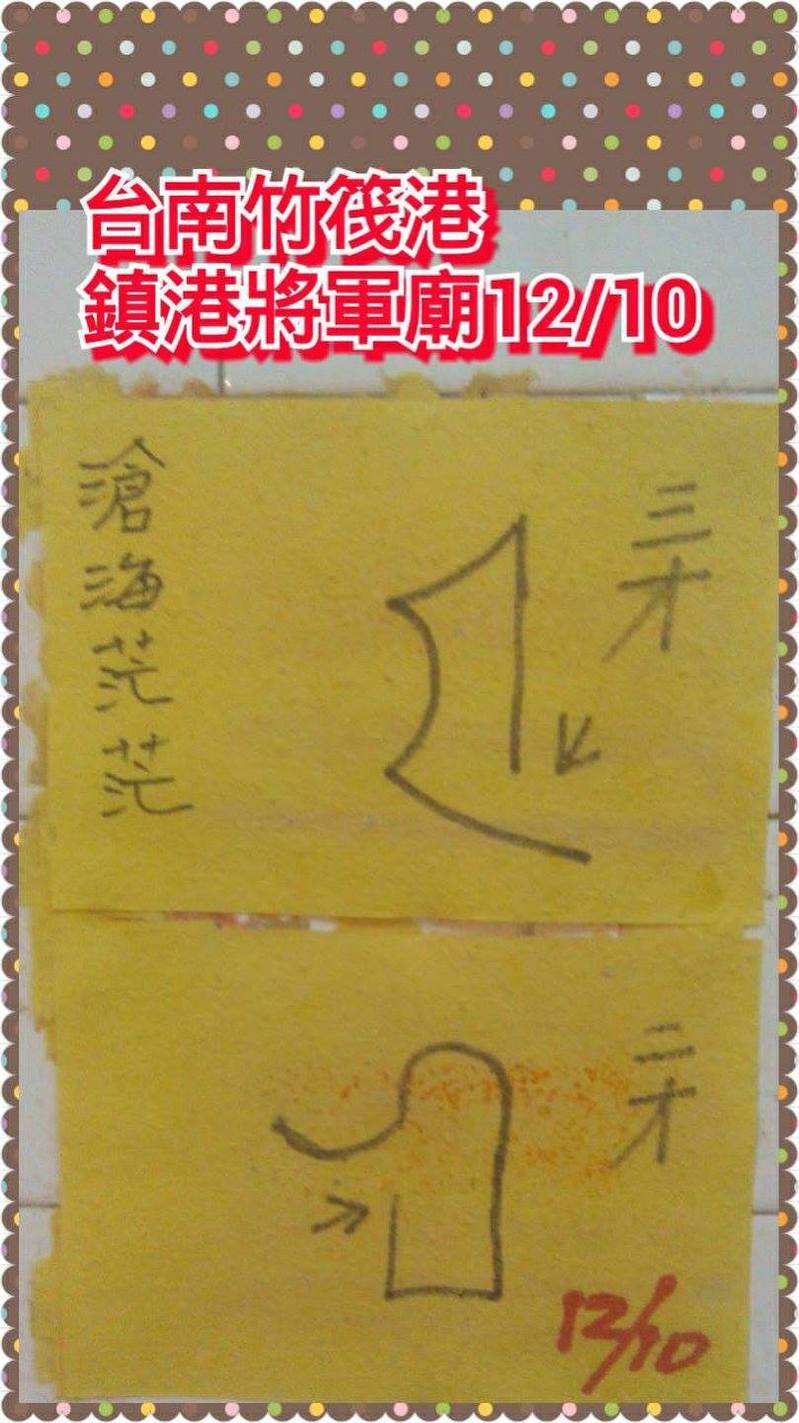 台南竹筏港
鎮港將軍廟12/10
三才
滄海茫茫
二才
12/10